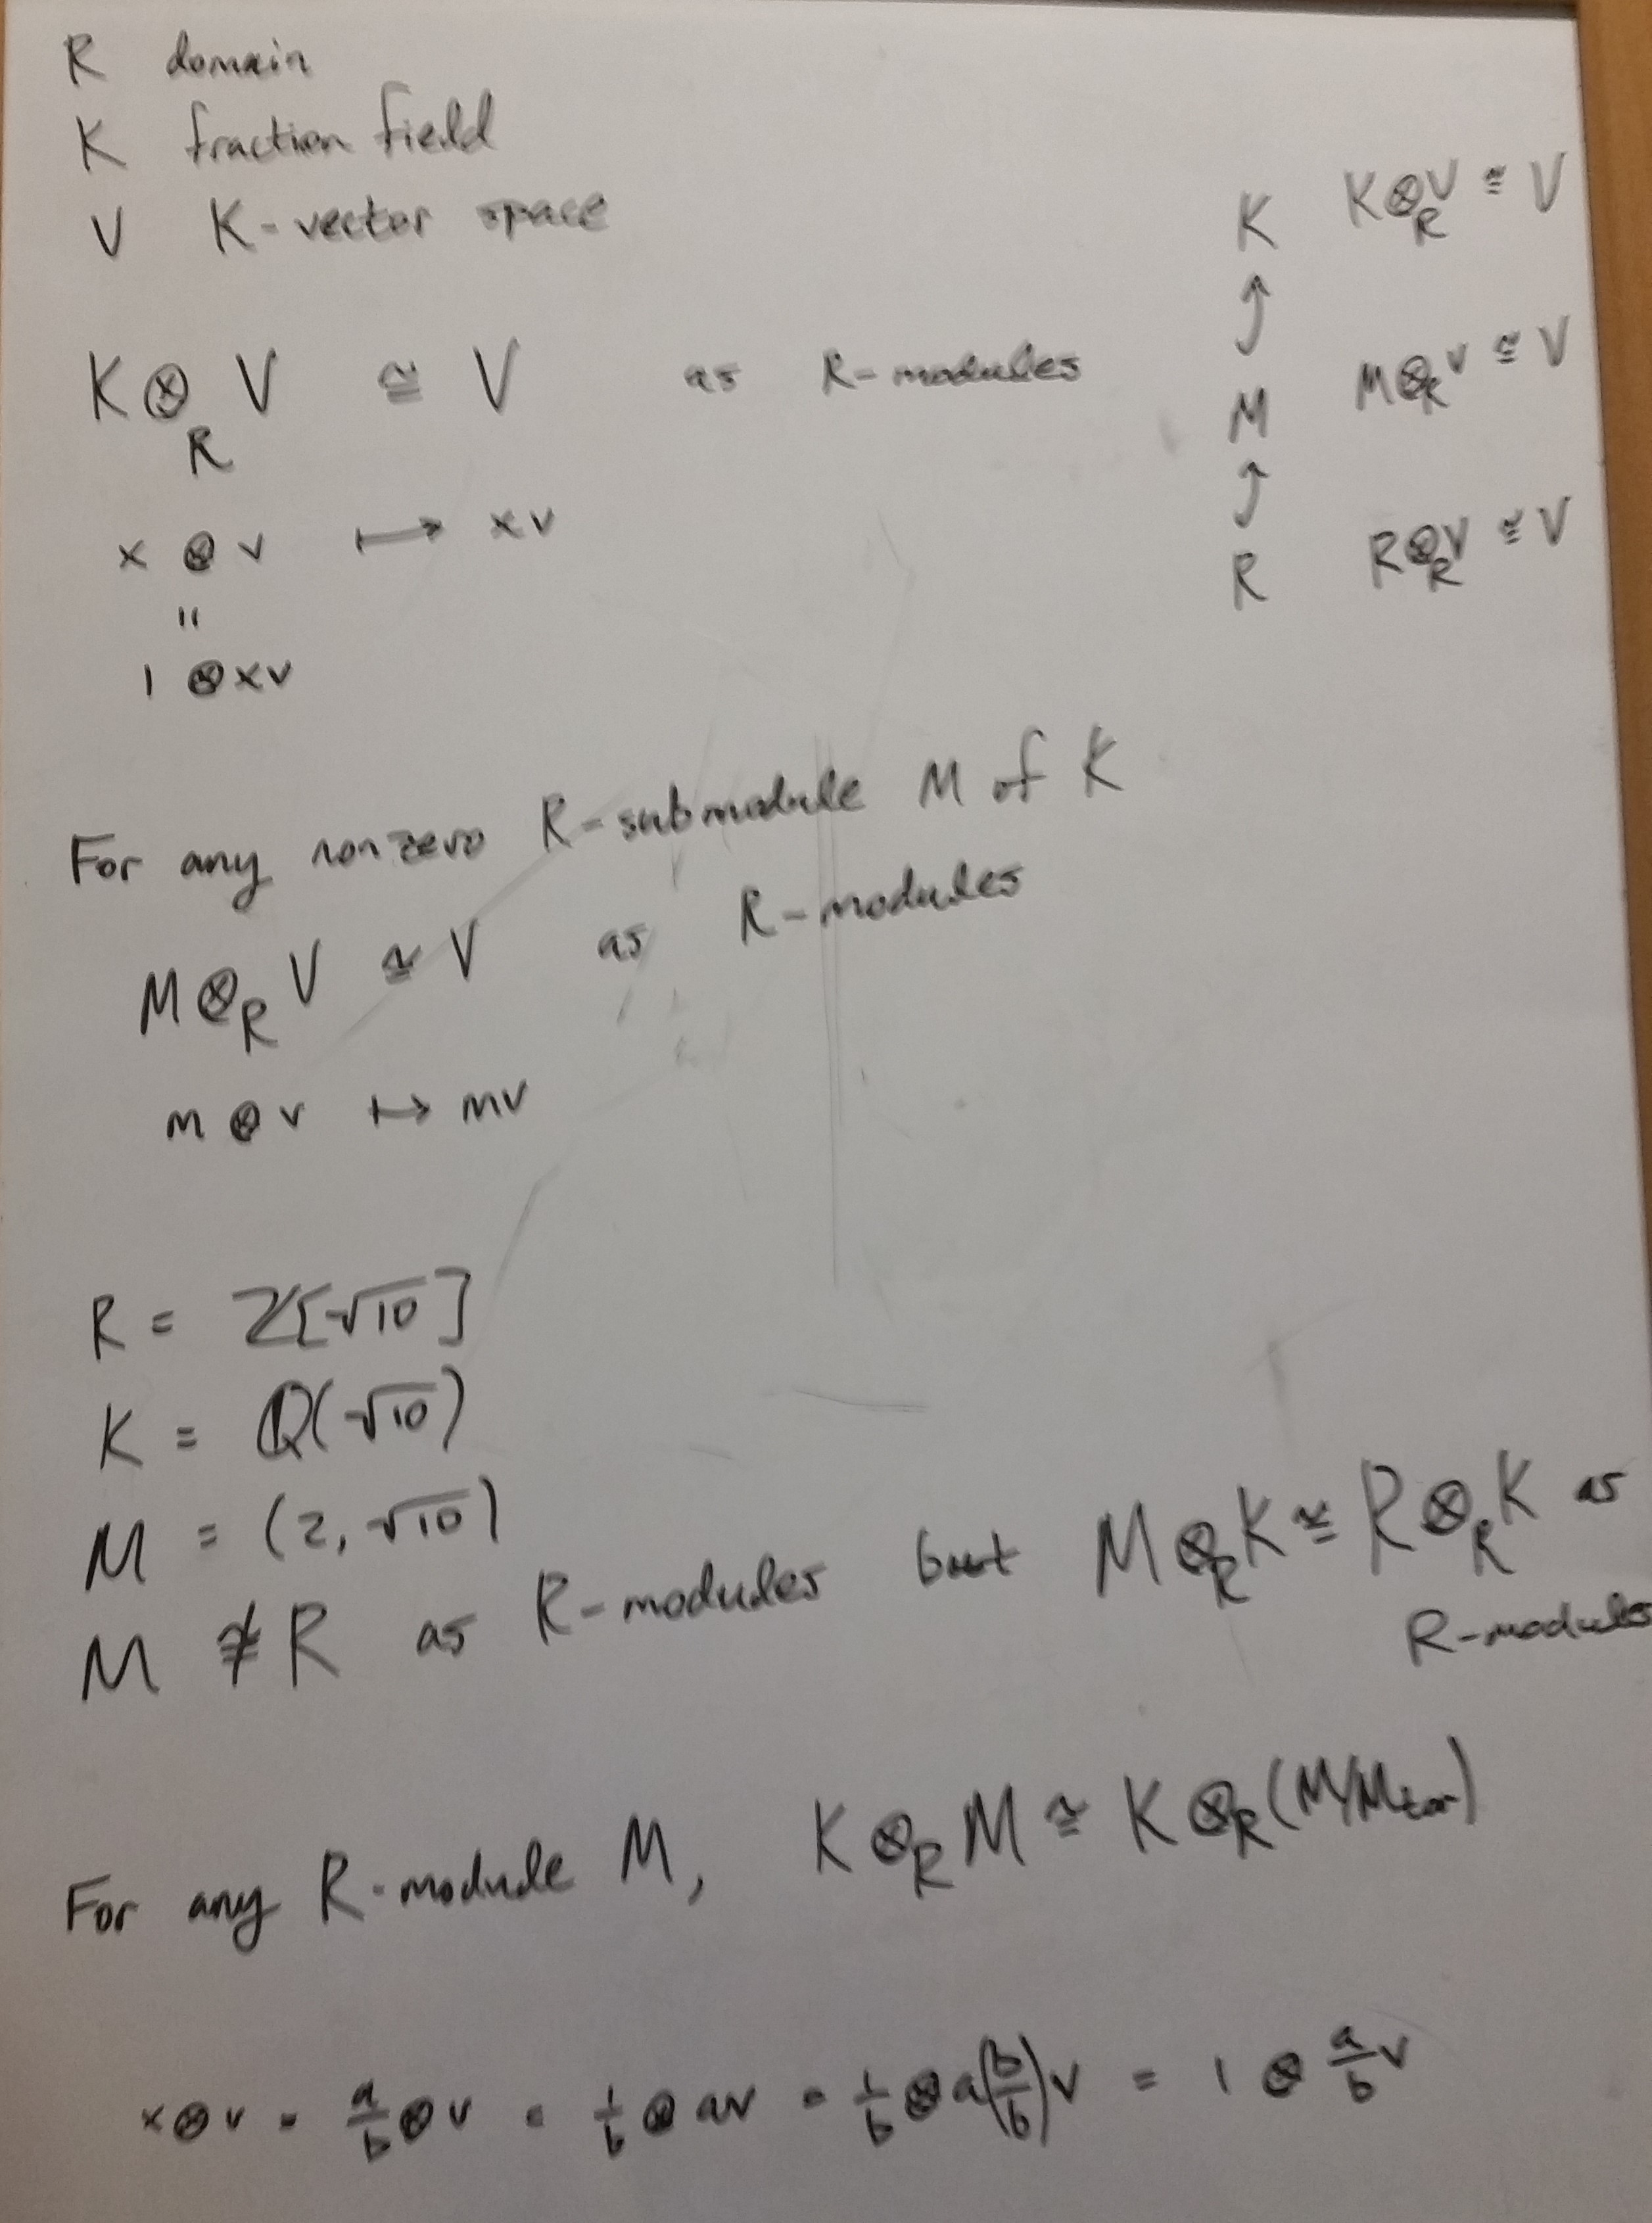 R domain
K fraction field
V K-vector space
K ⊗_R V ≅ V as R-modules
x ⊗ v ↦ xv
=
1 ⊗ xv
K K⊗_R V ≅ V
↑
M M⊗_R V ≅ V
↑
R R⊗_R V ≅ V
For any nonzero R-submodule M of K
M ⊗_R V ≅ V as R-modules
m ⊗ v ↦ mv
R = Z[√10]
K = Q(√10)
M = (2, √10)
M ≇ R as R-modules but M ⊗_R K ≅ R ⊗_R K as
R-modules
For any R-module M, K ⊗_R M ≅ K ⊗_R (M/M_tor)
x⊗v = a/b ⊗ v = 1/b ⊗ av = 1/b ⊗ a(b/b)v = 1 ⊗ a/b v